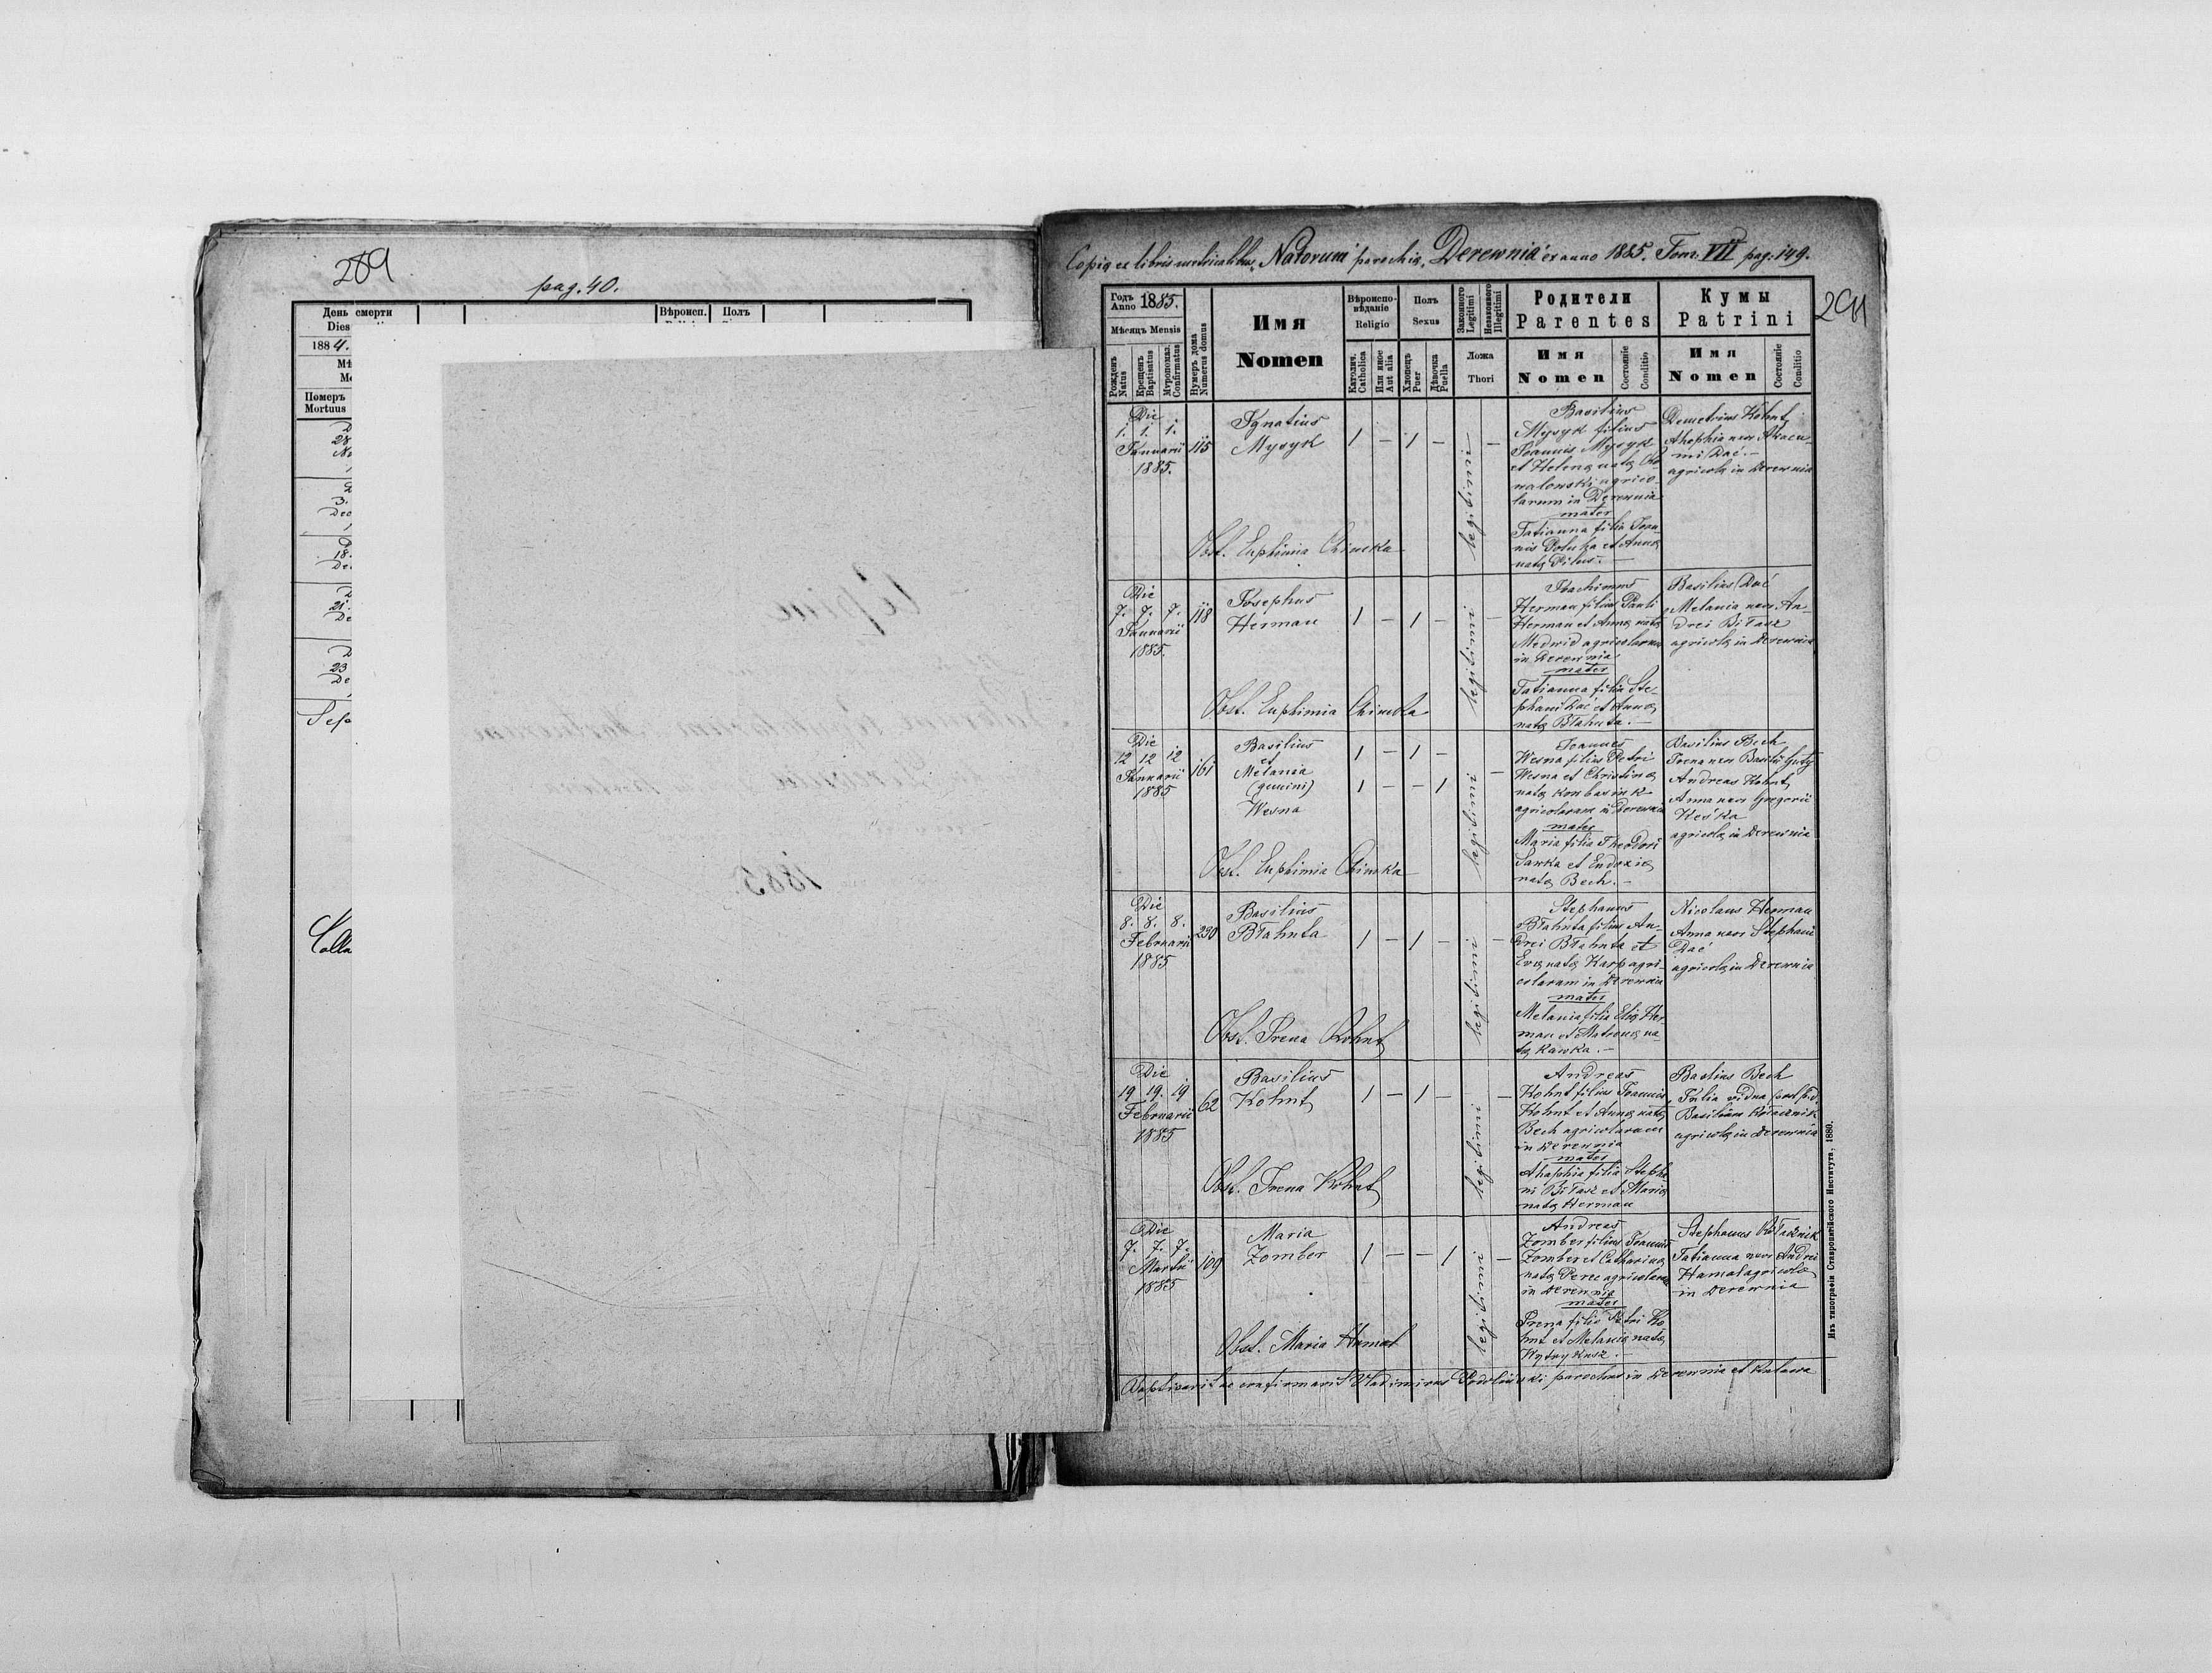 289
pag. 40.
День смерти
Dies
1884.
Вѣроисп.
Полъ
Померъ
Mortuus
28
3.
18.
21.
23
1885.
Copia ex libris metricalibus Natorum parochiæ Derewnia ex anno 1885. Tom. VII pag. 149.
291
Годъ Anno 1885.
Мѣсяцъ Mensis
Рожденъ Natus
Крещенъ Baptisatus
Мѵропомаз. Confirmatus
Нумеръ дома Numerus domus
Имя
Nomen
Вѣроисповѣданіе
Religio
Католич. Catholica
Или иное Aut alia
Полъ
Sexus
Хлопецъ Puer
Дѣвочка Puella
Законного Legitimi
Незаконного Illegitimi
Ложа
Thori
Родители
Parentes
Имя
Nomen
Состояніе Conditio
Кумы
Patrini
Имя
Nomen
Состояніе Conditio
Die
1. 1. 1.
Januarii
1885.
115
Ignatius
Mysyk
1 – 1 –
legitimi
–
Basilius
Mysyk filius
Joannis Mysyk
et Helenæ natæ
agrico-
larum in Derewnia
mater
Tatianna filia Joan-
nis et Annæ
natæ Pilus. –
Demetrius Kohut
Ahaphia uxor
Dać. –
agricolæ in Derewnia
Obst. Euphimia Chimka
Die
7. 7. 7.
Januarii
1885.
118
Josephus
Herman
1 – 1 –
legitimi
–
Joachimus
Herman filius Pauli
Herman et Annæ natæ
Medwid agricolarum
in Derewnia
mater
Tatianna filia Ste-
phani Dać et Annæ
natæ Błahuta. –
Basilius Dać
Melania uxor An
drei Biłasz
agricolæ in Derewnia
Obst. Euphimia Chimka
Die
12 12 12
Januarii
1885
161
Basilius
et
Melania
(gemini)
Wesna
1 – 1 –
1 – – 1
legitimi
–
Joannes
Wesna filius Petri
Wesna et Christinæ
natæ Konbasiuk
agricolarum in Derewnia
mater
Maria filia Theodori
Sawka et Eudoxiæ
natæ Bech. –
Basilius Bech
Irena uxor Basilii Guty
Andreas Kohut,
Anna uxor Gregorii
Keśka
agricolæ in Derewnia
Obst. Euphimia Chimka
Die
8. 8. 8.
Februarii
1885
230
Basilius
Błahuta
1 – 1 –
legitimi
–
Stephanus
Błahuta filius An-
drei Błahuta et
Evæ natæ Karp agri-
colarum in Derewnia
mater
Melania filia Eliæ Her-
man et Matronæ na-
tæ Kawka. –
Nicolaus Herman
Anna uxor Stephani
Dać
agricolæ in Derewnia
Obst. Irena Kohut
Die
19 19. 19
Februarii
1885
62
Basilius
Kohut
1 – 1 –
legitimi
–
Andreas
Kohut filius Joannis
Kohut et Annæ natæ
Bech agricolarum
in Derewnia
mater
Ahaphia filia Stepha
ni Biłasz et Mariæ
natæ Herman
Basilius Bech
Julia vidua post
Basilium Kołacznik
agricolæ in Derewnia
Obst. Irena Kohut
Die
7. 7. 7.
Martii
1885
109
Maria
Zomber
1 – – 1
legitimi
–
Andreas
Zomber filius Joannis
Zomber et Catharinæ
natæ Perec agricolarum
in Derewnia
mater
Irena filia Petri Ko
hut et Melaniæ natæ
Kytrykusz. –
Stephanus Kołacznik
Tatianna uxor Andrei
Hamal agricolæ
in Derewnia
Obst. Maria Hamal
Baptisavit ac confirmavit Vladimirus Podoliński parochus in Derewnia et Kulawa
Изъ типографіи Ставропигійского Института, 1880.